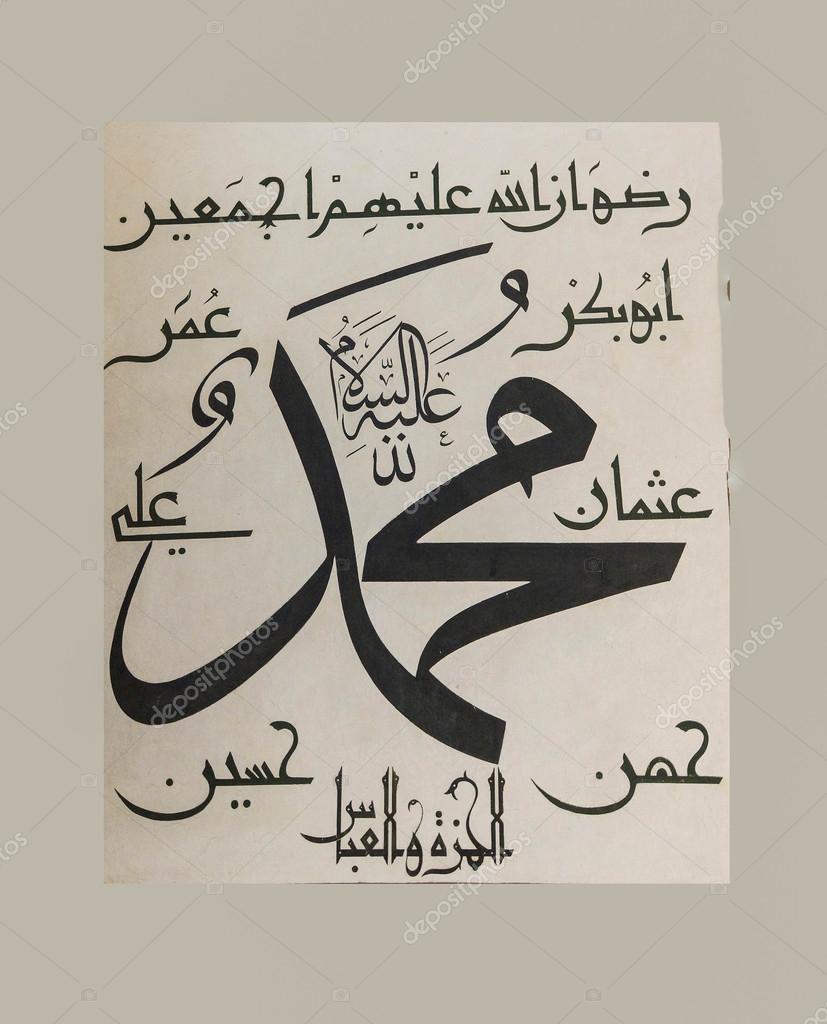 رضوَان اللّه عليْهِمْ اجمَعين
ابُوبكرْ عُمَر
محمد
عَليه السّلام
عثمان علي
حسن حسين
الحمزة والعباس
depositphotos